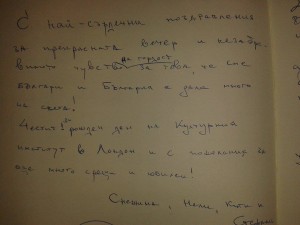 С най-сърдечни поздравления
за прекрасната вечер и незабра-
вимото чувство на гордост за това, че сме
българи и България е дала много
на света!
Честит рожден ден на Културния
институт в Лондон и с пожелания за
още много срещи и юбилеи!
Снежина, Нели, Катя и